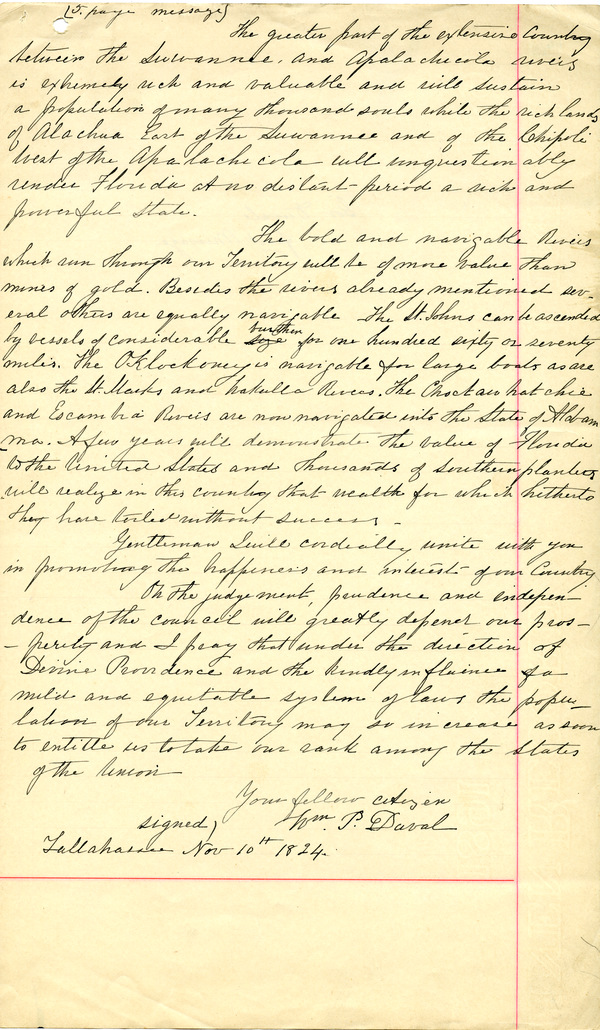 (5. page message)
The greater part of the extensive Country
between the Suwannee, and Apalachicola rivers
is extremely rich and valuable and will sustain
a population of many thousand souls while the rich lands
of Alachua East of the Suwannee and of the Chipoli
West of the Apalachicola will unquestionably
render Florida at no distant period a rich and
powerful State.
The bold and navigable Rivers
which run through our Territory will be of more value than
mines of gold. Besides the rivers already mentioned sev-
eral others are equally navigable The St. Johns can be ascended
by vessels of considerable burthen for one hundred sixty or seventy
miles. The Oklockoney is navigable for large boats as are
also the St. Marks and Wakulla Rivers. The Choctaw hat chie
and Escambia Rivers are now navigated into the State of Alabam
ma. A few years will demonstrate the value of Florida
to the United States and thousands of southern planters
will realize in this country that wealth for which hitherto
they have toiled without success -
Gentleman I will cordially unite with you
in promoting the happiness and interest of our Country
On the judgement, prudence and indepen-
dence of the council will greatly depend our pros-
- perity and I pray that under the direction of
Divine Providence and the kindly influince of a
mild and equitable system of laws the popu-
lation of our Territory may so increase as soon
to entitle us to take our rank among the States
of the Union
Your fellow citizen
signed, Wm. P. Duval
Tallahassee Nov 10th 1824.